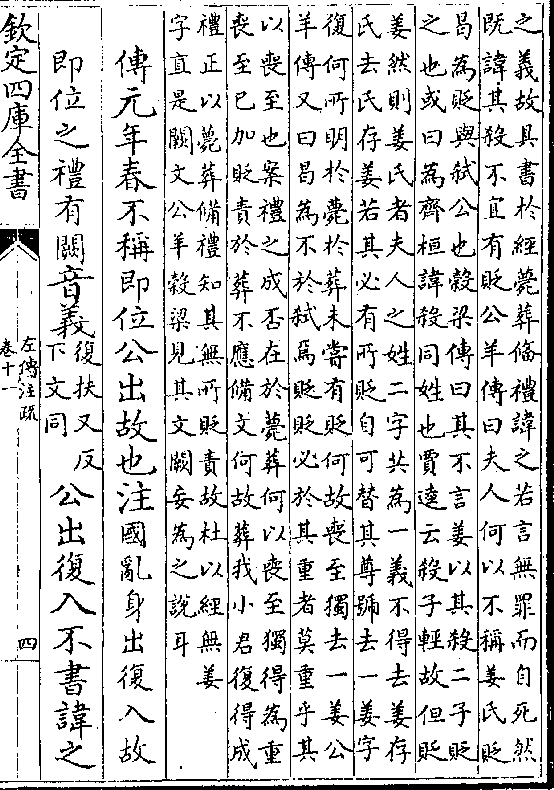 之義故具書於經薨葬俻禮諱之若言無罪而自死然
既諱其殺不宜有貶公羊傳曰夫人何以不稱姜氏貶
曷為貶與弑公也榖梁傳曰其不言姜以其殺二子貶
之也或曰為齊桓諱殺同姓也賈逵云殺子輕故但貶
姜然則姜氏者夫人之姓二字共為一義不得去姜存
氏去氏存姜若其必有所貶自可替其尊號去一姜字
復何所明於薨於葬未嘗有貶何故喪至獨去一姜公
羊傳又曰曷為不於弑焉貶貶必於其重者莫重乎其
以喪至也案禮之成否在於薨葬何以喪至獨得為重
喪至已加貶責於葬不應備文何故葬我小君復得成
禮正以薨葬備禮知其無所貶責故杜以經無姜
字直是闕文公羊榖梁見其文闕妄為之說耳
傳元年春不稱即位公出故也注國亂身出復入故
即位之禮有闕音義復扶又反下文同公出復入不書諱之
欽定四庫全書
左傳注疏
卷十一
四